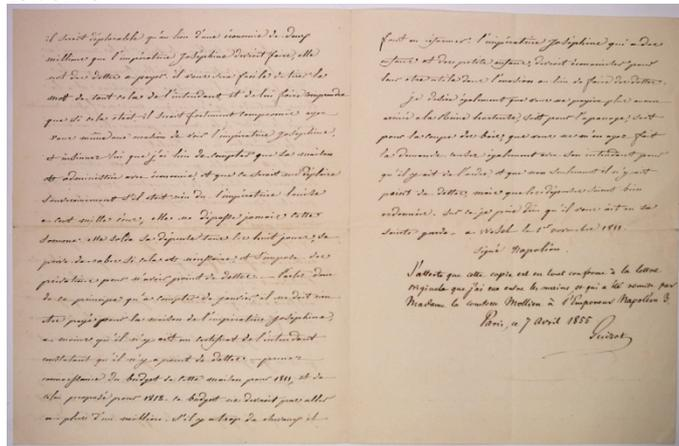 il serait déplorable qu'au lieu d'une économie de deux
millions que l'impératrice Joséphine devrait faire, elle
eut des dettes à payer. il vous sera facile de tirer le
mot de tout cela de l'intendant et de lui faire comprendre
que si cela était il serait fortement compromis ayez
vous même une maison de voir l'impératrice Joséphine,
et insinuez lui que j'ai lieu de compter que sa maison
est administrée avec économie, et que ce serait me déplaire
souverainement s'il était rien dû. l'impératrice louise
a cent mille écus, elle ne dépasse jamais cette
somme. elle solde sa dépense tous les huit jours; se
prive de robes si cela est nécessaire, et s'impose des
privations pour n'avoir point de dettes. — Partez donc
de ce principe qu'à compter de janvier il ne doit rien
être payé pour la maison de l'impératrice Joséphine,
à moins qu'il n'y ait un certificat de l'intendant
constatant qu'il n'y a point de dettes. — prenez
connaissance du budget de cette maison pour 1811, et de
celui proposé pour 1812. ce budget ne devrait pas aller
à plus d'un million. S'il y a trop de chevaux il
faut en réformer. l'impératrice Joséphine qui a des
enfans et des petits enfans, devrait économiser pour
leur être utile dans l'occasion au lieu de faire des dettes.
je désire également que vous ne payiez plus aucun
à la Reine hortense, soit pour l'apanage, soit
pour la coupe des bois, que vous ne m'en ayez fait
la demande. également avec son intendant pour
qu'il y ait de l'ordre, et que non seulement il n'y ait
point de dettes, mais que les dépenses soient bien
ordonnées. sur ce je prie Dieu qu'il vous ait en sa
sainte garde. — a Wesel le 1er novembre 1811.
signé Napoléon.
J'atteste que cette copie est en tout conforme à la lettre
originale que j'ai eue entre les mains et qui a été remise par
Madame la comtesse Mollien à l'Empereur Napoléon 3.
Paris, ce 7 avril 1855
Guizot